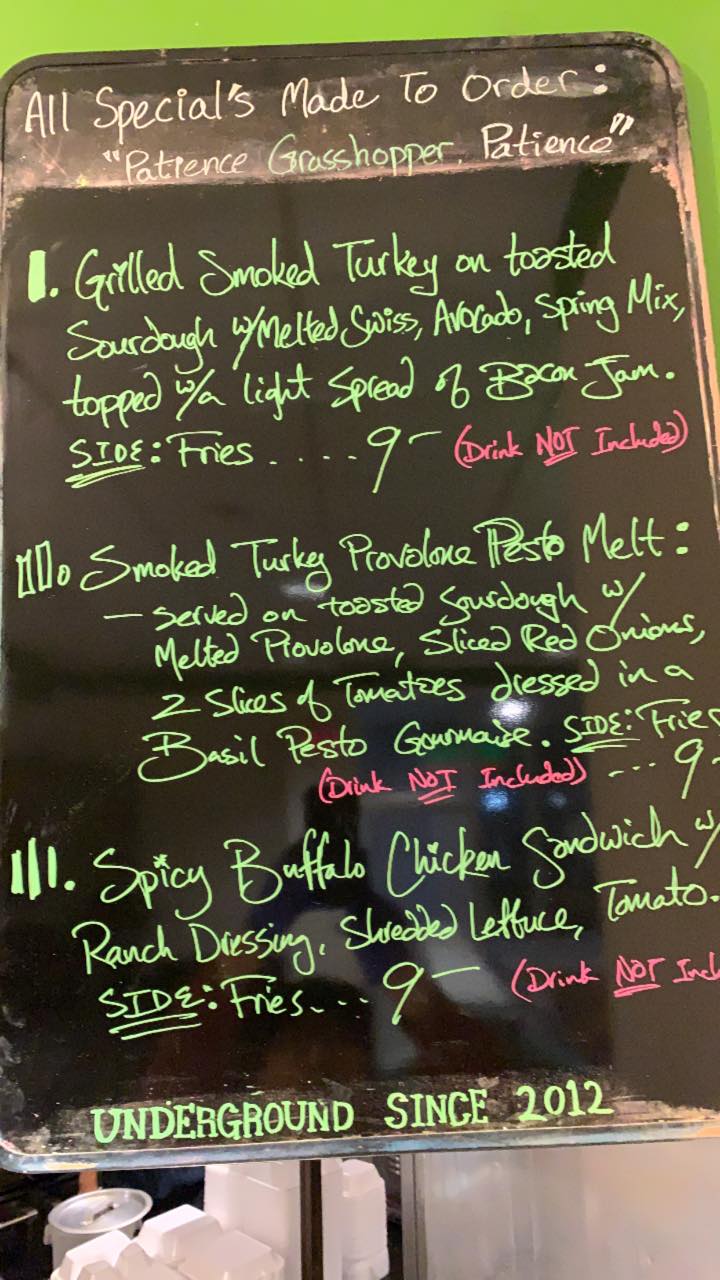 All Special's Made To Order:
"Patience Grasshopper, Patience"
I. Grilled Smoked Turkey on toasted
Sourdough w/Melted Swiss, Avocado, Spring Mix,
topped w/a light Spread of Bacon Jam.
SIDE: Fries ..... 9- (Drink NOT Included)
II. Smoked Turkey Provolone Pesto Melt:
- Served on toasted Sourdough w/
Melted Provolone, Sliced Red Onions,
2 Slices of Tomatoes dressed in a
Basil Pesto Gourmaise. SIDE: Fries
(Drink NOT Included) ... 9-
III. Spicy Buffalo Chicken Sandwich w/
Ranch Dressing, Shredded Lettuce, Tomato.
SIDE: Fries.... 9- (Drink NOT Incl
UNDERGROUND SINCE 2012